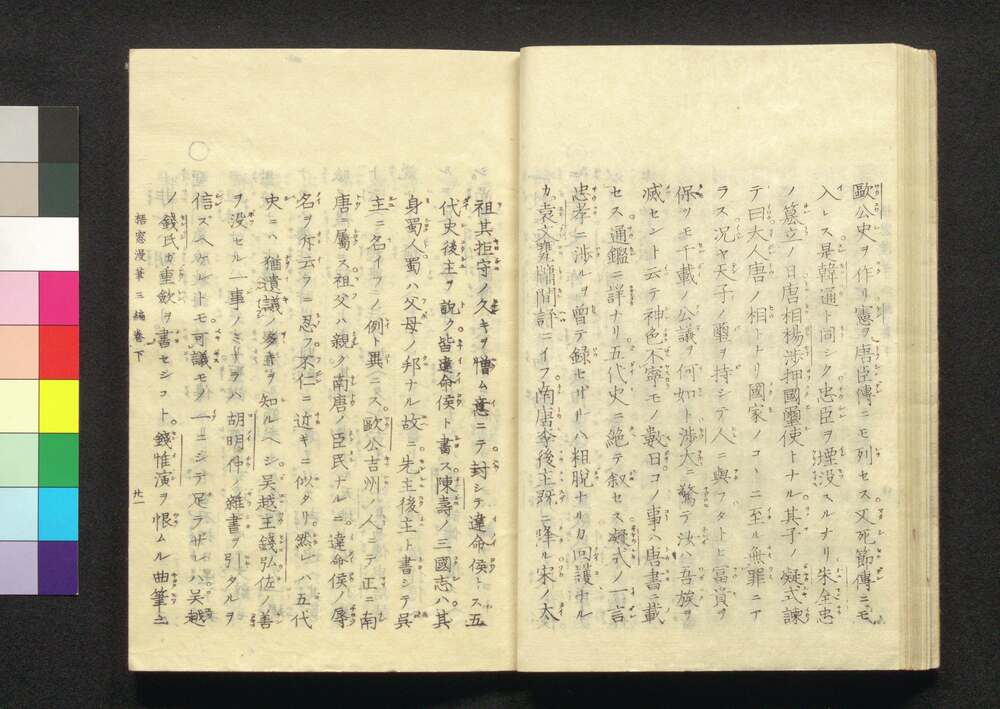 歐公史ヲ作リ憲ヲ唐臣傳ニモ列セス又死節傳ニモ
入レス是韓通ト同シク忠臣ヲ湮没スルナリ朱全忠
ノ簒立ノ日唐相楊渉押國璽使トナル其子ノ凝式諫
テ曰大人唐ノ相トナリ國家ノコヽニ至ル無罪ニア
ラス況ヤ天子ノ璽ヲ持シテ人ニ與フタトヒ冨貴ヲ
保ツモ千載ノ公議ヲ何如ト渉大ニ驚テ汝ハ吾族ヲ
滅セント云テ神色不寧モノ數日コノ事ハ唐書ニ載
セス通鑑ニ詳ナリ五代史ニ絶テ叙セス凝式ノ一言
忠孝ニ渉ルヲ曾テ録セザリシハ粗脱ナリカ回護ナル
カ袁文甕牖間評ニイフ南唐李後主既ニ降ル宋ノ太
祖其拒守ノ久キヲ憎ム意ニテ封シテ違命侯トス五
代史後主ヲ説ク皆違命侯ト書ス陳壽ノ三國志ハ其
身蜀人蜀ハ父母ノ邦ナル故ニ先主後主ト書シテ呉
主ニ名イフノ例ト異ニス歐公吉州ノ人ニテ正ニ南
唐ニ屬ス祖父ハ親ク南唐ノ臣民ナルニ違命侯ノ辱
名ヲ斥云フニ忍フ不仁ニ近キニ似タリ然レハ五代
史ニハ猶遺議多キヲ知ルヘシ呉越王錢弘佐ノ善
ヲ没セル一事ノミナラハ胡明仲ノ雜書ヲ引タルヲ
信スヘケレトモ可議モノ一ニシテ足ラザレハ呉越
ノ錢氏ガ重斂ヲ書セシコト錢惟演ヲ恨ムル曲筆之
梧窓漫筆三編巻下
廿一